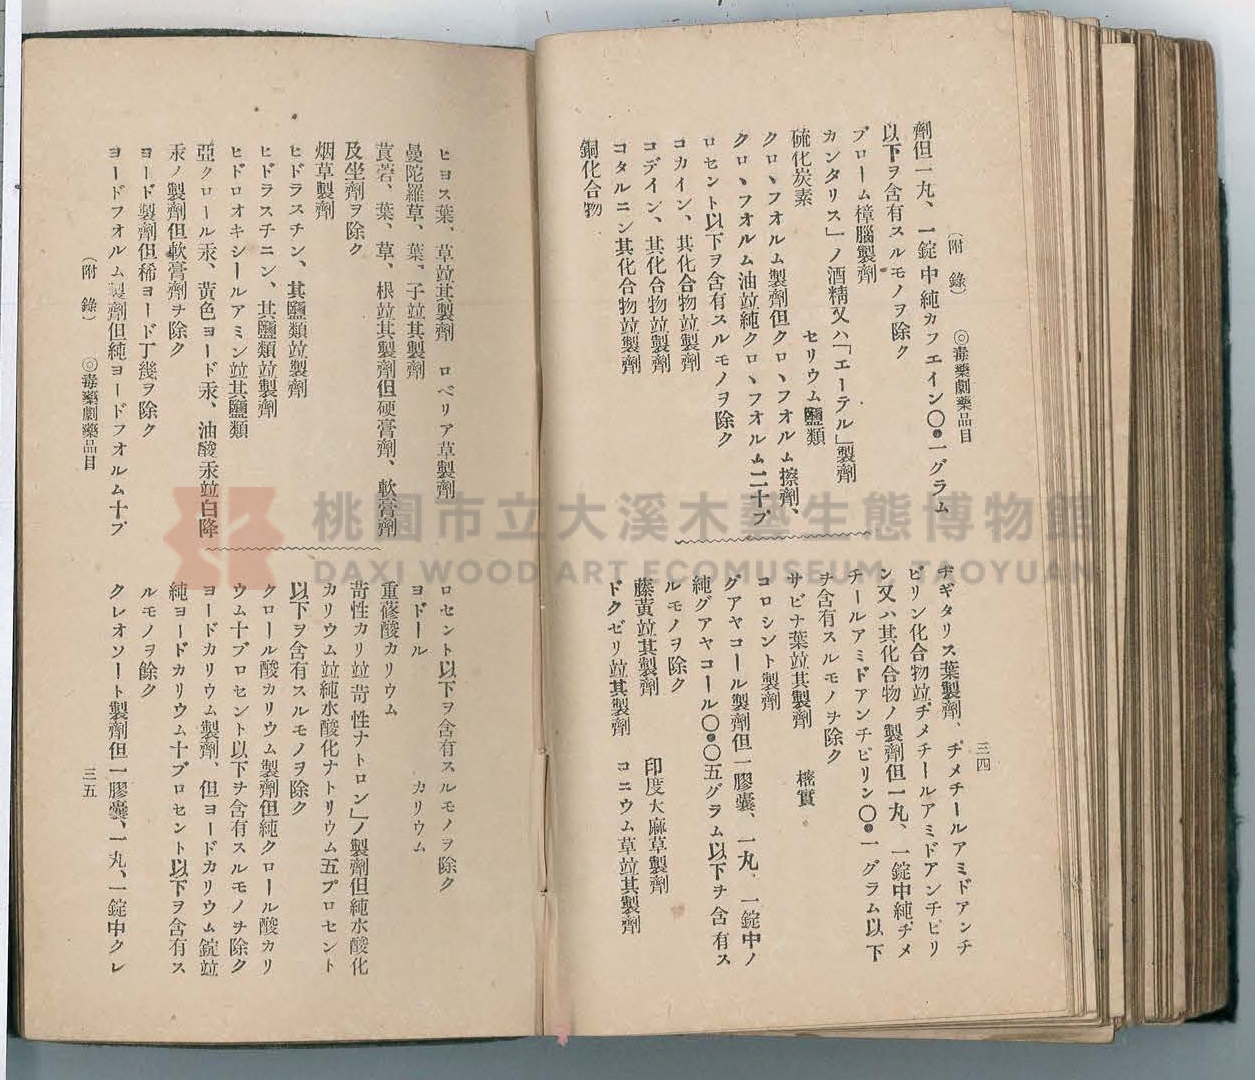 (附錄)　◎毒藥劇藥品目　三四
劑但一丸、一錠中純カフエイン〇・一グラム
以下ヲ含有スルモノヲ除ク
ブローム樟腦製劑
カンタリス」ノ酒精又ハ「エーテル」製劑
硫化炭素　セリウム鹽類
クロヽフオルム製劑但クロヽフオルム擦劑、
クロヽフオルム油竝純クロヽフオルム二十プ
ロセント以下ヲ含有スルモノヲ除ク
コカイン、其化合物竝製劑
コデイン、其化合物竝製劑
コタルニン其化合物竝製劑
銅化合物
ヂギタリス葉製劑、ヂメチールアミドアンチ
ピリン化合物竝ヂメチールアミドアンチピリ
ン又ハ其化合物ノ製劑但一丸、一錠中純ヂメ
チールアミドアンチピリン〇・一グラム以下
ヲ含有スルモノヲ除ク
サビナ葉竝其製劑　榧實
コロシント製劑
グアヤコール製劑但一膠囊、一丸、一錠中ノ
純グアヤコール〇・〇五グラム以下ヲ含有ス
ルモノヲ除ク
藤黃竝其製劑　印度大麻草製劑
ドクゼリ竝其製劑　コニウム草竝其製劑
ヒヨス葉、草竝其製劑　ロベリア草製劑
曼陀羅草、葉、子竝其製劑
莨菪、葉、草、根竝其製劑但硬膏劑、軟膏劑
及坐劑ヲ除ク
烟草製劑
ヒドラスチン、其鹽類竝製劑
ヒドラスチニン、其鹽類竝製劑
ヒドロオキシールアミン竝其鹽類
亞クロール汞、黃色ヨード汞、油酸汞竝白降
汞ノ製劑但軟膏劑ヲ除ク
ヨード製劑但稀ヨード丁幾ヲ除ク
ヨードフオルム製劑但純ヨードフオルム十プ
ロセント以下ヲ含有スルモノヲ除ク
ヨドール　カリウム
重蓚酸カリウム
苛性カリ竝苛性ナトロン」ノ製劑但純水酸化
カリウム竝純水酸化ナトリウム五プロセント
以下ヲ含有スルモノヲ除ク
クロール酸カリウム製劑但純クロール酸カリ
ウム十プロセント以下ヲ含有スルモノヲ除ク
ヨードカリウム製劑、但ヨードカリウム錠竝
純ヨードカリウム十プロセント以下ヲ含有ス
ルモノヲ餘ク
クレオソート製劑但一膠囊、一丸、一錠中クレ
(附錄)　◎毒藥劇藥品目　三五
桃園市立大溪木藝生態博物館
DAXI WOOD ART ECOMUSEUM, TAOYUAN